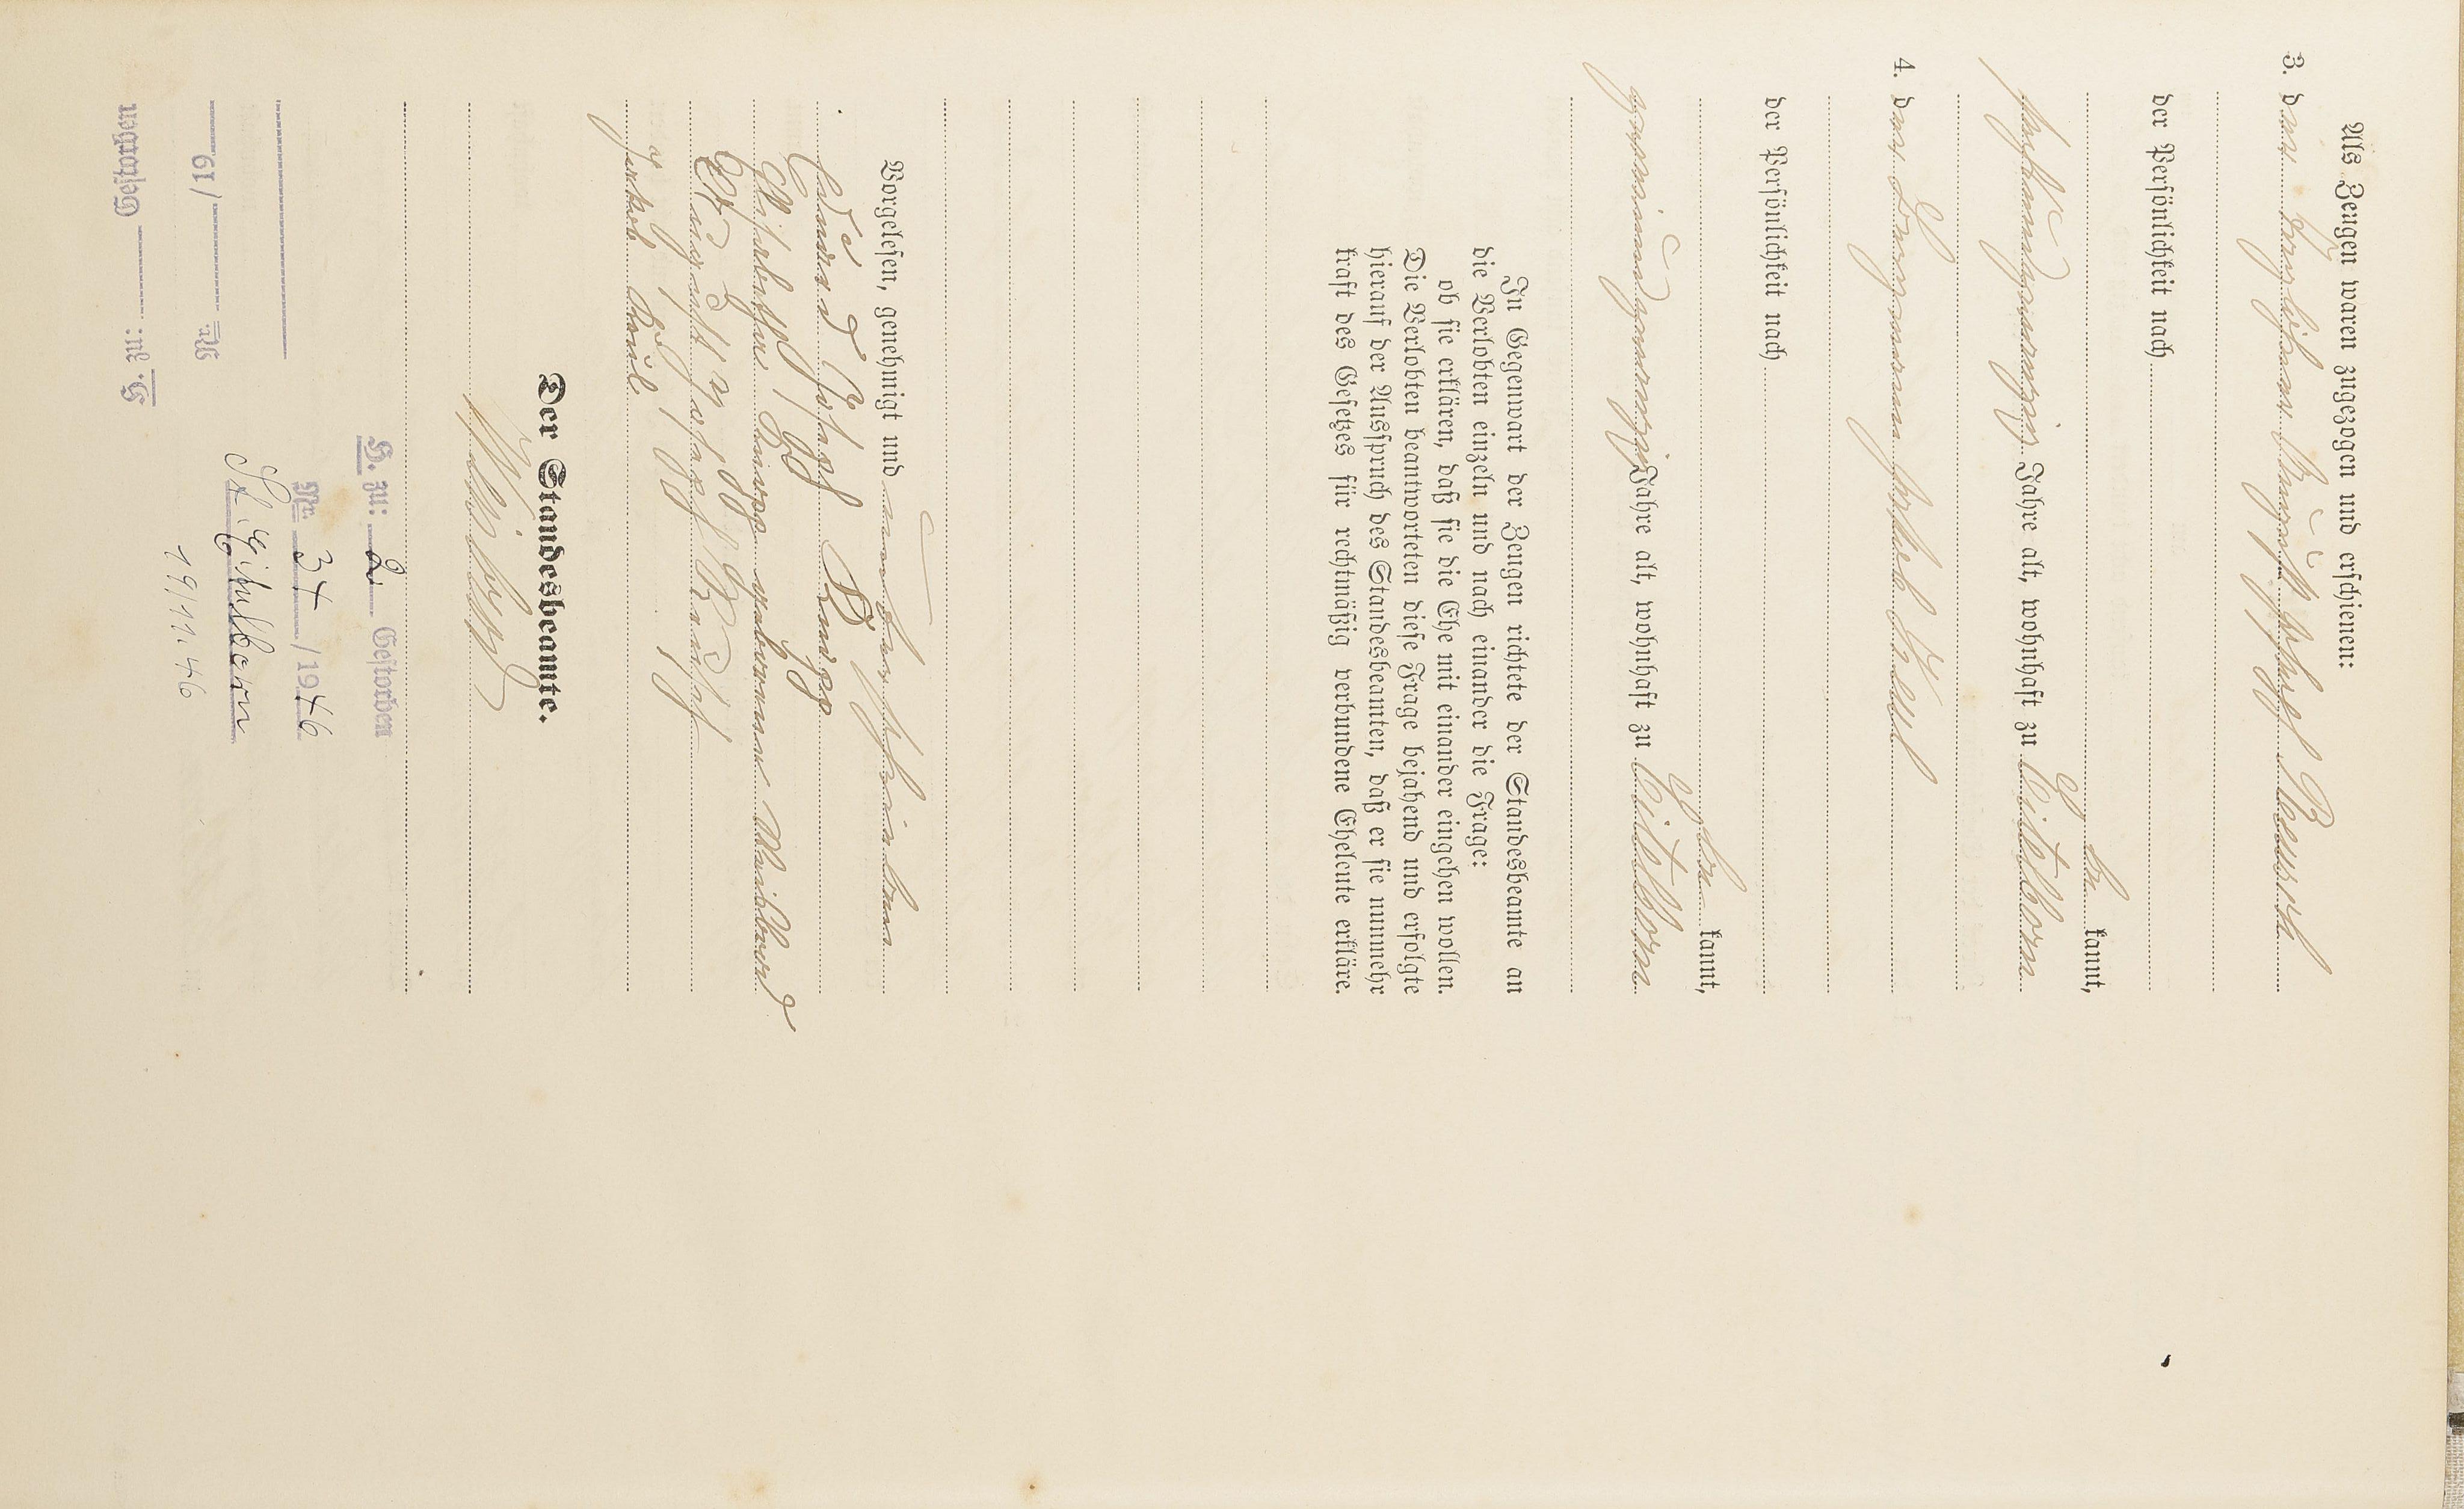 Als Zeugen waren zugezogen und erschienen:
3. der
der Persönlichkeit nach
be kannt,
fünfundzwanzig Jahre alt, wohnhaft zu Eitelborn
4. der Bergmann Jakob Kaul
der Persönlichkeit nach
kannt,
zweiundzwanzig Jahre alt, wohnhaft zu Eitelborn
In Gegenwart der Zeugen richtete der Standesbeamte an
die Verlobten einzeln und nach einander die Frage:
ob sie erklären, daß sie die Ehe mit einander eingehen wollen.
Die Verlobten beantworteten diese Frage bejahend und erfolgte
hierauf der Ausspruch des Standesbeamten, daß er sie nunmehr
kraft des Gesetzes für rechtmäßig verbundene Eheleute erkläre.
Vorgelesen, genehmigt und unterschrieben
Eduard Josef
Elisabetha geborene
August Josef
Jakob Kaul
Der Standesbeamte.
H. zu: 2. Gestorben
Nr. 34 / 1946
St. Eitelborn
19/11.46
H. zu: Gestorben
Nr. /19